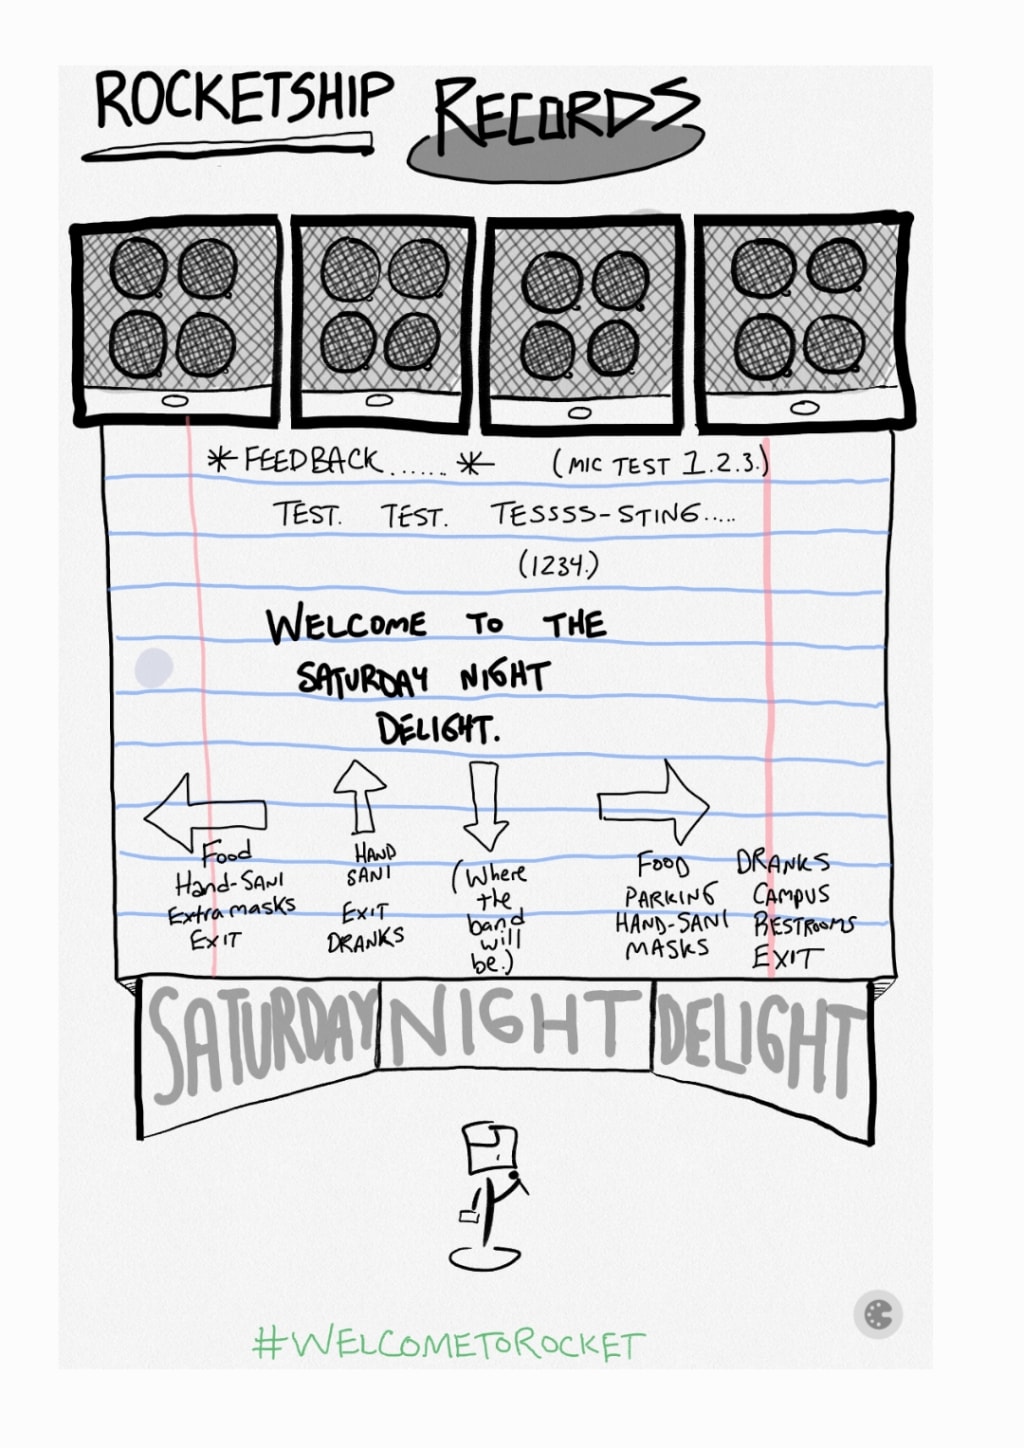 ROCKETSHIP RECORDS
*FEEDBACK......* (MIC TEST 1.2.3.)
TEST. TEST. TESSSS-STING.....
(1234.)
WELCOME TO THE
SATURDAY NIGHT
DELIGHT.
Food
Hand-SANI
Extra masks
EXIT
HAND
SANI
EXIT
DRANKS
(Where
the
band
will
be.)
FOOD
PARKING
HAND-SANI
MASKS
DRANKS
CAMPUS
RESTROOMS
EXIT
SATURDAY NIGHT DELIGHT
#WELCOMETOROCKET